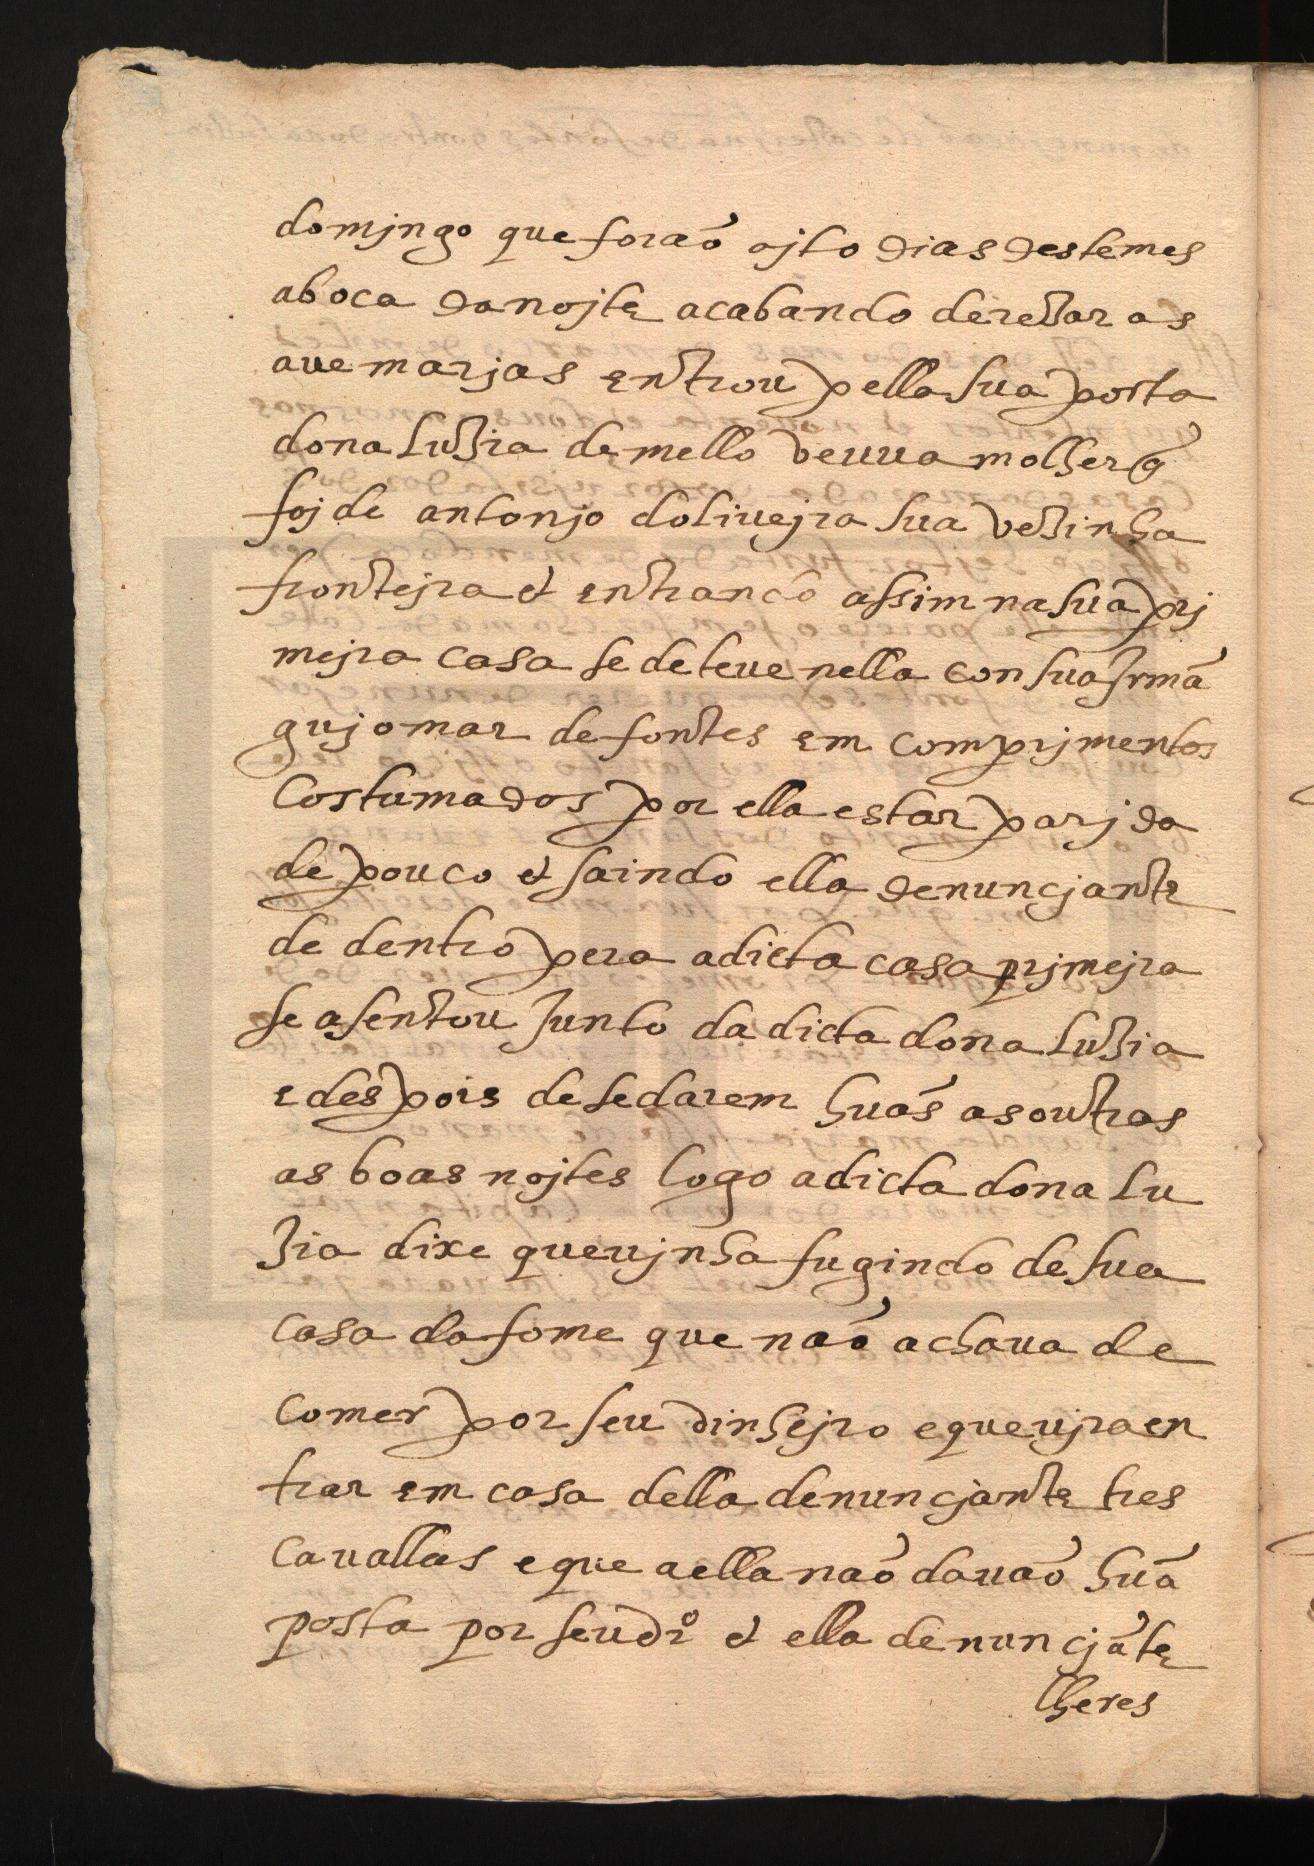 domjngo que foraõ ojto dias deste mes
a boca da nojte acabando de rezar as
aue marjas entrou pella sua porta
dona Luzia de mello veuua molher q̃
foj de antonjo dolivejra sua vezinha
frontejra et entrando assim na sua prj
mejra casa se deteue nella con sua Jrmã
gujomar de fontes em comprjmentos
costumados por ella estar parjda
de pouco et saindo ella denuncjante
de dentro pera a dicta casa prjmejra
se asentou Junto da dicta dona Luzia
e despois de se darem huãs as outras
as boas nojtes logo a dicta dona Lu
zia dixe que vjnha fugindo de sua
casa da fome que naõ achaua de
comer por seu dinhejro e que vjra en
trar em casa della denuncjante tres
cauallas e que a ella naõ dauaõ huã
posta por seu drº et ella denuncjãte
lheres